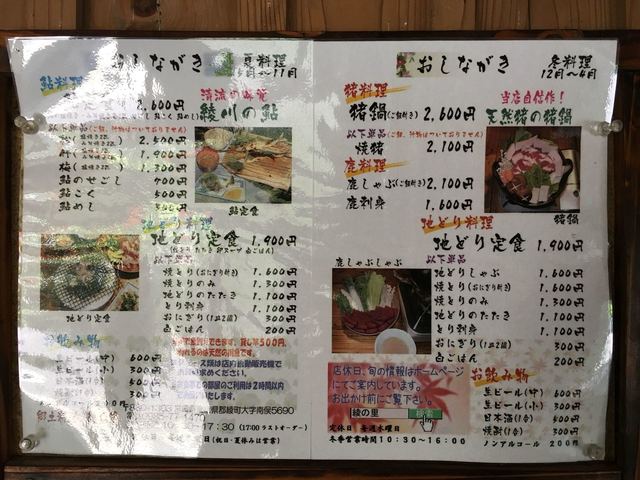 しながき
夏料理
月～11月
鮎料理
2,600円
清流の味覚
綾川の鮎
以下単品(ご飯、汁物はついておりません)
竹
1,900円
梅
1,300円
鮎のせごし
鮎こく
鮎めし
鮎定食
地どり料理
地どり定食 1,900円
地どり定食
以下単品
焼とり(おにぎり付) 1,600円
焼とりのみ 1,300円
地どりのたたき 1,100円
とり刺身 1,100円
おにぎり(1皿2線) 300円
白ごはん 200円
お飲み物
生ビール(中) 600円
生ビール(小)
日本酒(1合)
焼酎(1合) 300円
貸し竿500円、
は天然の川魚です。
の部屋のご利用は2時間以内
県郡綾町大字南俣5690
17:30 (17:00ラストオーダー)
日(祝日・夏休みは営業)
おしながき
冬料理
12月～4月
猪料理
猪鍋(ご飯付き) 2,600円
以下単品(ご飯、汁物はついておりません)
焼猪 2,100円
当店自信作!
天然猪の猪鍋
猪鍋
鹿料理
鹿しゃぶ(ご飯付き) 2,100円
鹿刺身 1,600円
地どり料理
地どり定食 1,900円
以下単品
鹿しゃぶしゃぶ
地どりしゃぶ 1,600円
焼とり(おにぎり付) 1,600円
焼とりのみ 1,300円
地どりのたたき 1,100円
とり刺身 1,100円
おにぎり(1皿2線) 300円
白ごはん 200円
店休日、旬の情報はホームページ
にてご案内しています。
お出かけ前にご覧下さい。
綾の里 検索
定休日 毎週木曜日
冬季営業時間10:30～16:00
お飲み物
生ビール(中) 600円
生ビール(小) 300円
日本酒(1合) 400円
焼酎(1合) 300円
ノンアルコール 200円